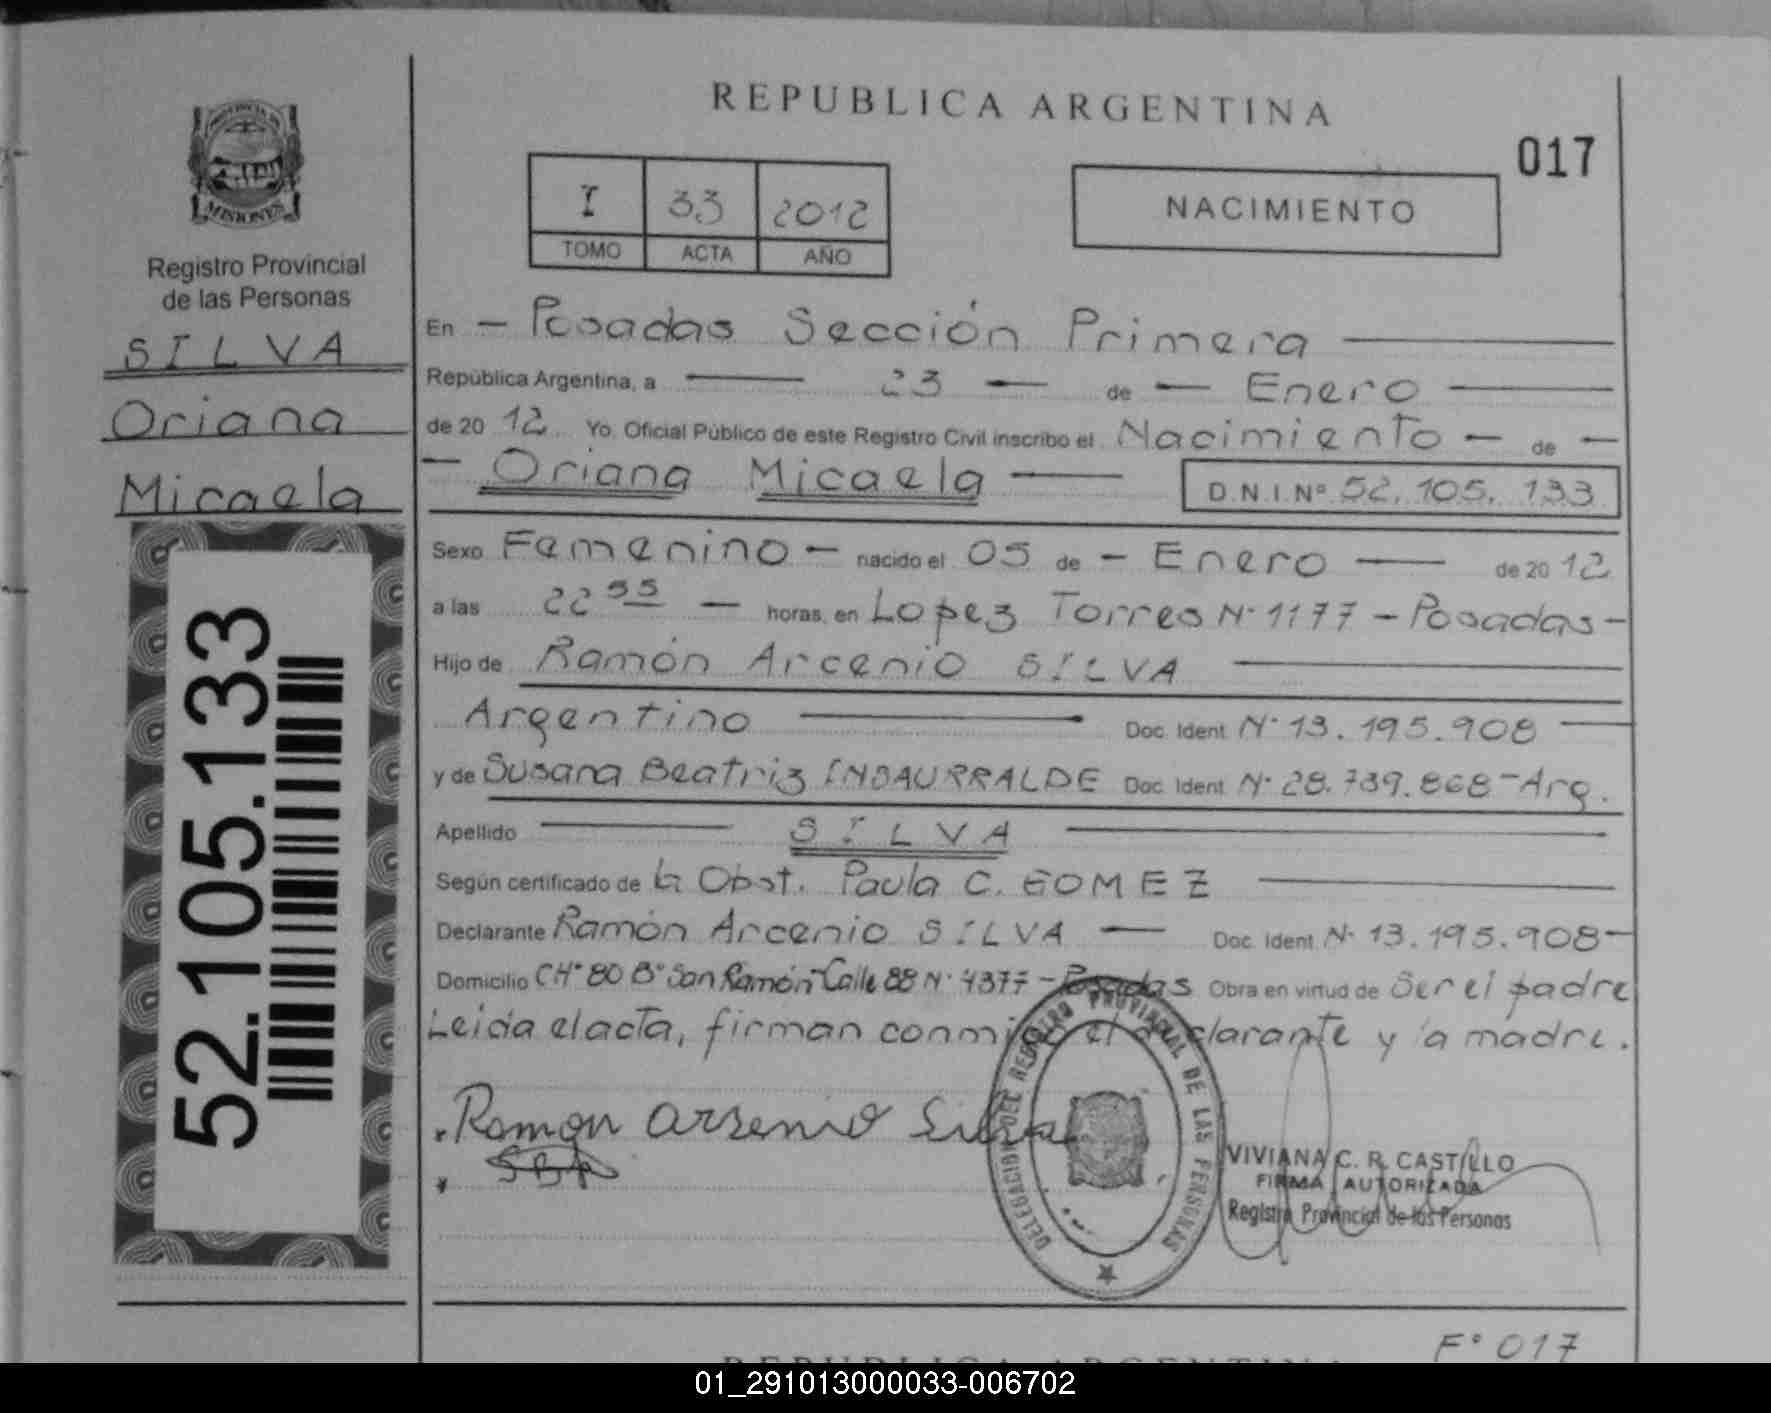 REPUBLICA ARGENTINA
017
PROVINCIA DE
MISIONES
Registro Provincial
de las Personas
SILVA
Oriana
Micaela
52.105.133
I 33 2012
TOMO ACTA AÑO
NACIMIENTO
En - Posadas Sección Primera
República Argentina, a 23 de Enero
de 2012 Yo, Oficial Público de este Registro Civil inscribo el Nacimiento de
Oriana Micaela D.N.I. Nº 52.105.133
Sexo Femenino - nacido el 05 de - Enero de 2012
a las 22 55 - horas, en Lopez Torres Nº 1177 - Posadas -
Hijo de Ramón Arcenio SILVA
Argentino Doc. Ident. Nº 13.195.908
y de Susana Beatriz INSAURRALDE Doc. Ident. Nº 28.739.868 - Arg.
Apellido SILVA
Según certificado de la Obst. Paula C. GOMEZ
Declarante Ramón Arcenio SILVA Doc. Ident. Nº 13.195.908 -
Domicilio CHº 80 Bº San Ramón - Calle 88 Nº 4377 - Posadas Obra en virtud de Ser el padre
Leida el acta, firman conmigo el declarante y la madre.
Ramon Arsenio Silva
SBA
DELEGACION DEL REGISTRO PROVINCIAL DE LAS PERSONAS
VIVIANA C. R. CASTILLO
FIRMA AUTORIZADA
Registro Provincial de las Personas
Fº 017
REPUBLICA ARGENTINA
01_291013000033-006702